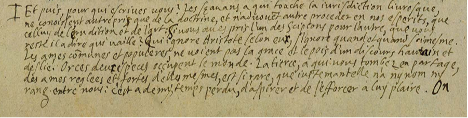 Et puis, pour qui escrives vous? Les sçauans a qui touche la iurisdiction livresque,
ne conoissent autre pris que de la doctrine, et n'aduouent autre proceder en nos esprits, que
celluy de l'erudition et de l'art. Si vous aues pris l'un des scipions pour l'autre, que vous
reste il a dire qui vaille? Qui ignore Aristote selon eus s'ignore quand et quand soimesme.
Les ames comunes et populeres ne voient pas la grace et le pois d'un discours hautein et
deslie. Or ces deus especes occupent le monde. La tierce, a qui vous tombez en partage,
des ames reglees et fortes d'elles mesmes, est si rare, que iustemant elle n'a ny nom ny
rang entre nous: c'est a demi temps perdu, d'aspirer et de s'efforcer a luy plaire. On